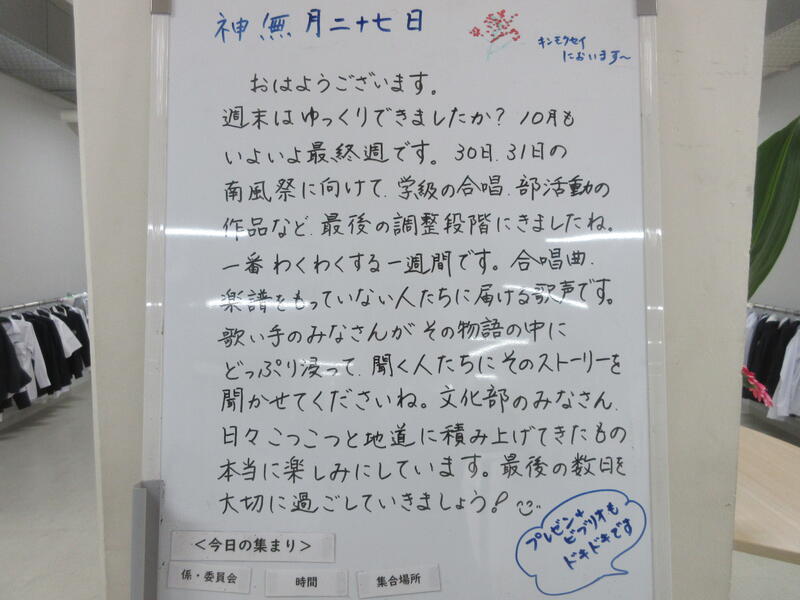 神無月二十七日
キンモクセイ
においます〜
おはようございます。
週末はゆっくりできましたか? 10月も
いよいよ最終週です。30日、31日の
南風祭に向けて、学級の合唱、部活動の
作品など、最後の調整段階にきましたね。
一番わくわくする一週間です。合唱曲、
楽譜をもっていない人たちに届ける歌声です。
歌い手のみなさんがその物語の中に
どっぷり浸って、聞く人たちにそのストーリーを
聞かせてくださいね。文化部のみなさん、
日々こつこつと地道に積み上げてきたもの
本当に楽しみにしています。最後の数日を
大切に過ごしていきましょう!
プレゼン+
ビブリオも
ドキドキです
<今日の集まり>
係・委員会
時間
集合場所